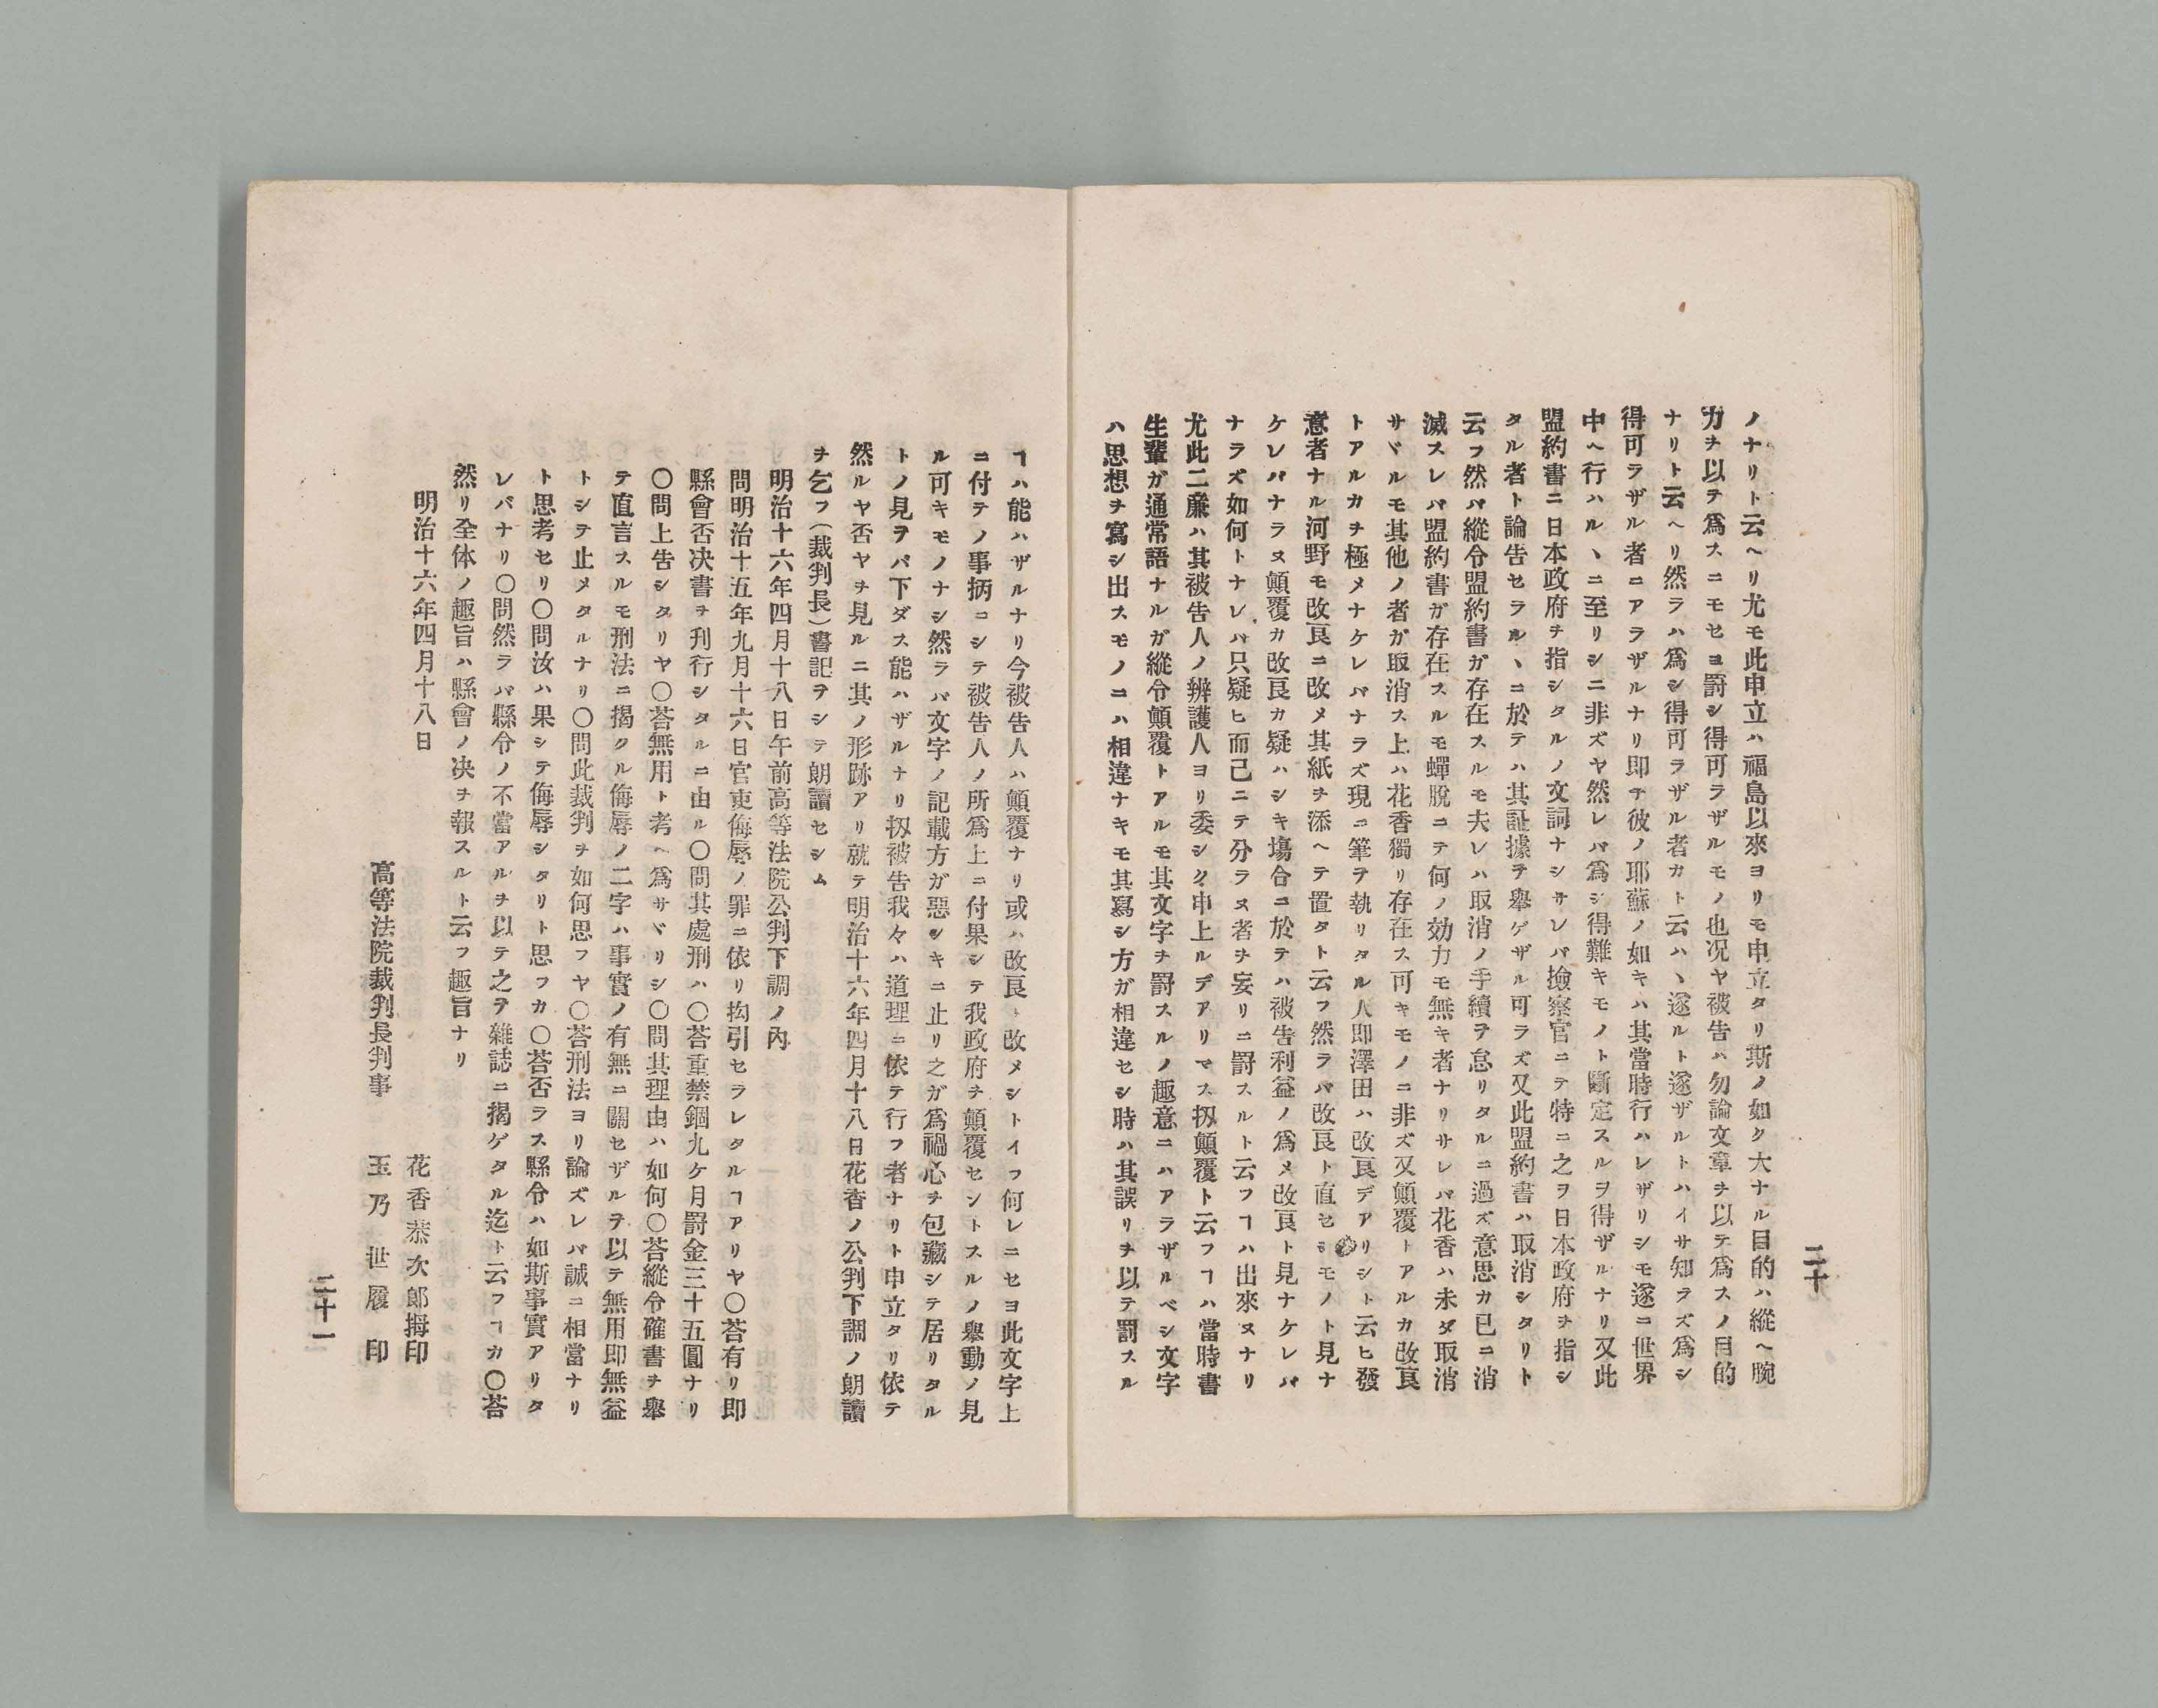 二十
ノナリト云ヘリ尤モ此申立ハ福島以來ヨリモ申立タリ斯ノ如ク大ナル目的ハ縱ヘ腕
力ヲ以テ爲スニモセヨ罸シ得可ラザルモノ也况ヤ被告ハ勿論文章ヲ以テ爲スノ目的
ナリト云ヘリ然ラハ爲シ得可ラザル者カト云ハヽ遂ルト遂ザルトハイサ知ラズ爲シ
得可ラザル者ニアラザルナリ即チ彼ノ耶蘇ノ如キハ其當時行ハレザリシモ遂ニ世界
中ヘ行ハルヽニ至リシニ非ズヤ然レバ爲シ得難キモノト斷定スルヲ得ザルナリ又此
盟約書ニ日本政府ヲ指シタルノ文詞ナシサレバ撿察官ニテ特ニ之ヲ日本政府ヲ指シ
タル者ト論告セラルヽニ於テハ其証據ヲ舉ゲザル可ラズ又此盟約書ハ取消シタリト
云フ然バ縱令盟約書ガ存在スルモ夫レハ取消ノ手續ヲ怠リタルニ過ズ意思カ已ニ消
滅スレバ盟約書ガ存在スルモ蟬脱ニテ何ノ効力モ無キ者ナリサレバ花香ハ未ダ取消
サヾルモ其他ノ者ガ取消ス上ハ花香獨リ存在ス可キモノニ非ズ又顛覆トアルカ改良
トアルカヲ極メナケレバナラズ現ニ筆ヲ執リタル人即澤田ハ改良デアリシト云ヒ發
意者ナル河野モ改良ニ改メ其紙ヲ添ヘテ置タト云フ然ラバ改良ト直セシモノト見ナ
ケレバナラヌ顛覆カ改良カ疑ハシキ塲合ニ於テハ被告利益ノ爲メ改良ト見ナケレバ
ナラズ如何トナレバ只疑ヒ而已ニテ分ラヌ者ヲ妄リニ罸スルト云フヿハ出來ヌナリ
尤此二廉ハ其被告人ノ辨護人ヨリ委シク申上ルデアリマス扨顛覆ト云フヿハ當時書
生輩ガ通常語ナルガ縱令顛覆トアルモ其文字ヲ罸スルノ趣意ニハアラザルベシ文字
ハ思想ヲ寫シ出スモノニハ相違ナキモ其寫シ方ガ相違セシ時ハ其誤リヲ以テ罰スル
ヿハ能ハザルナリ今被告人ハ顛覆ナリ或ハ改良ト改メシトイフ何レニセヨ此文字上
ニ付テノ事柄ニシテ被告人ノ所爲上ニ付果シテ我政府ヲ顛覆セントスルノ舉動ノ見
ル可キモノナシ然ラバ文字ノ記載方ガ惡シキニ止リ之ガ爲禍心ヲ包藏シテ居リタル
トノ見ヲバ下ダス能ハザルナリ扨被告我々ハ道理ニ依テ行フ者ナリト申立タリ依テ
然ルヤ否ヤヲ見ルニ其ノ形跡アリ就テ明治十六年四月十八日花香ノ公判下調ノ朗讀
ヲ乞フ(裁判長)書記ヲシテ朗讀セシム
明治十六年四月十八日午前高等法院公判下調ノ內
問明治十五年九月十六日官吏侮辱ノ罪ニ依リ拘引セラレタルヿアリヤ〇荅有リ即
縣會否决書ヲ刋行シタルニ由ル〇問其處刑ハ〇荅重禁錮九ケ月罸金三十五圓ナリ
〇問上告シタリヤ〇荅無用ト考ヘ爲サヾリシ〇問其理由ハ如何〇荅縱令確書ヲ舉
テ直言スルモ刑法ニ揭クル侮辱ノ二字ハ事實ノ有無ニ關セザルヲ以テ無用即無益
トシテ止メタルナリ〇問此裁判ヲ如何思フヤ〇荅刑法ヨリ論ズレバ誠ニ相當ナリ
ト思考セリ〇問汝ハ果シテ侮辱シタリト思フカ〇荅否ラス縣令ハ如斯事實アリタ
レバナリ〇問然ラバ縣令ノ不當アルヲ以テ之ヲ雜誌ニ揭ゲタル迄ト云フヿカ〇荅
然リ全体ノ趣旨ハ縣會ノ决ヲ報スルト云フ趣旨ナリ
明治十六年四月十八日
花香恭次郎拇印
高等法院裁判長判事　玉乃世履　印
二十一